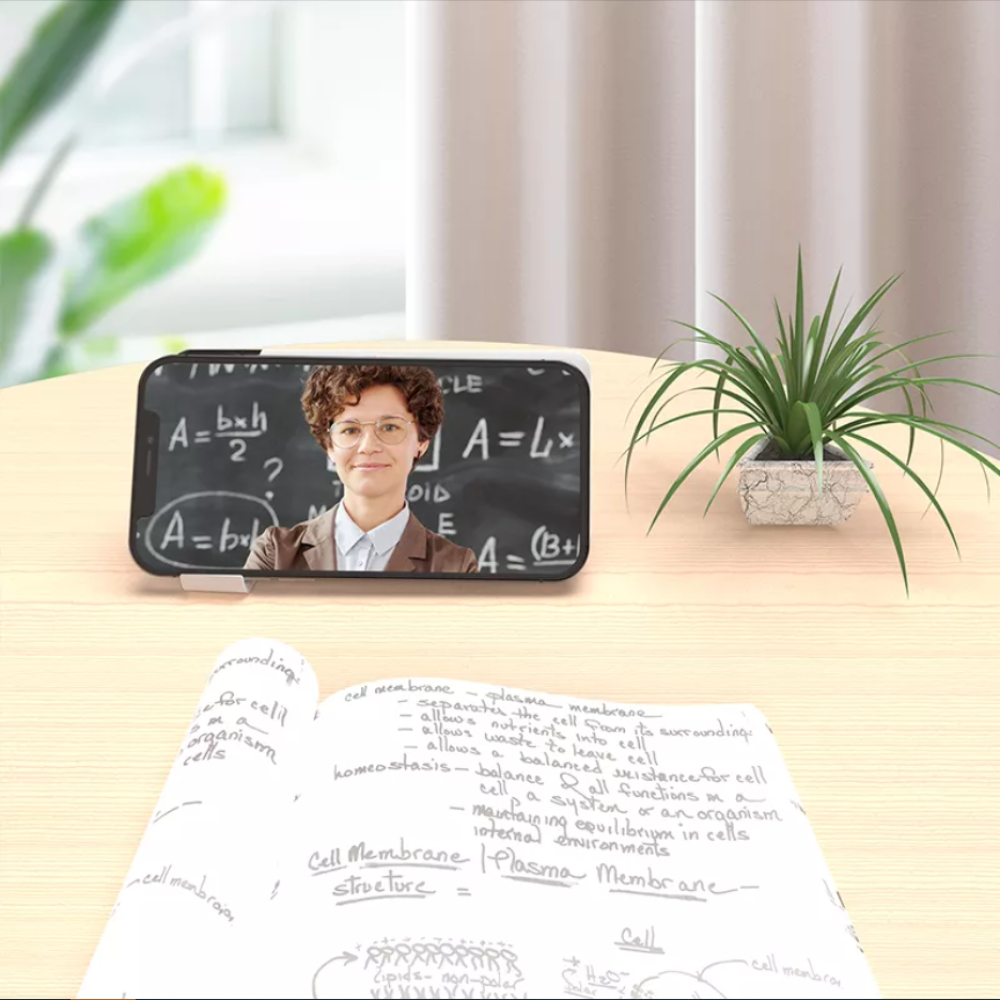 CLE
A = bxh
2
?
A = L×
OID
M E
A = bx
A = (B+
urrounding
for cell
m a
organism
cells
cell membrane – plasma membrane
– separates the cell from its surrounding
– allows nutrients into cell
– allows waste to leave cell
– allows a balanced existance for cell
homeostasis – balance & all functions in a
cell a system or an organism
– maintaining equilibrium in cells
internal environments
Cell Membrane | Plasma Membrane –
structure =
cell membrain
Cell
lipids - non-polar
H₂O
cell membran